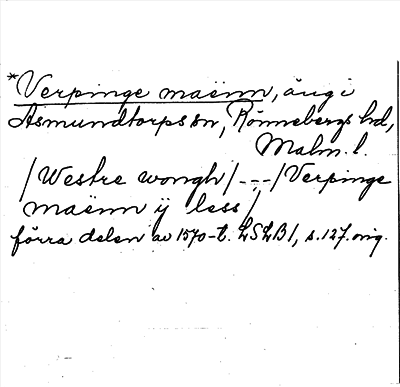 *Verpinge maënn, äng i
Asmundtorps sn, Rönnebergs hd,
Malm. l.
/Westre wongh/ --- /Verpinge
maënn ij less/,
förra delen av 1570-t. LSLB 1, s. 127. orig.